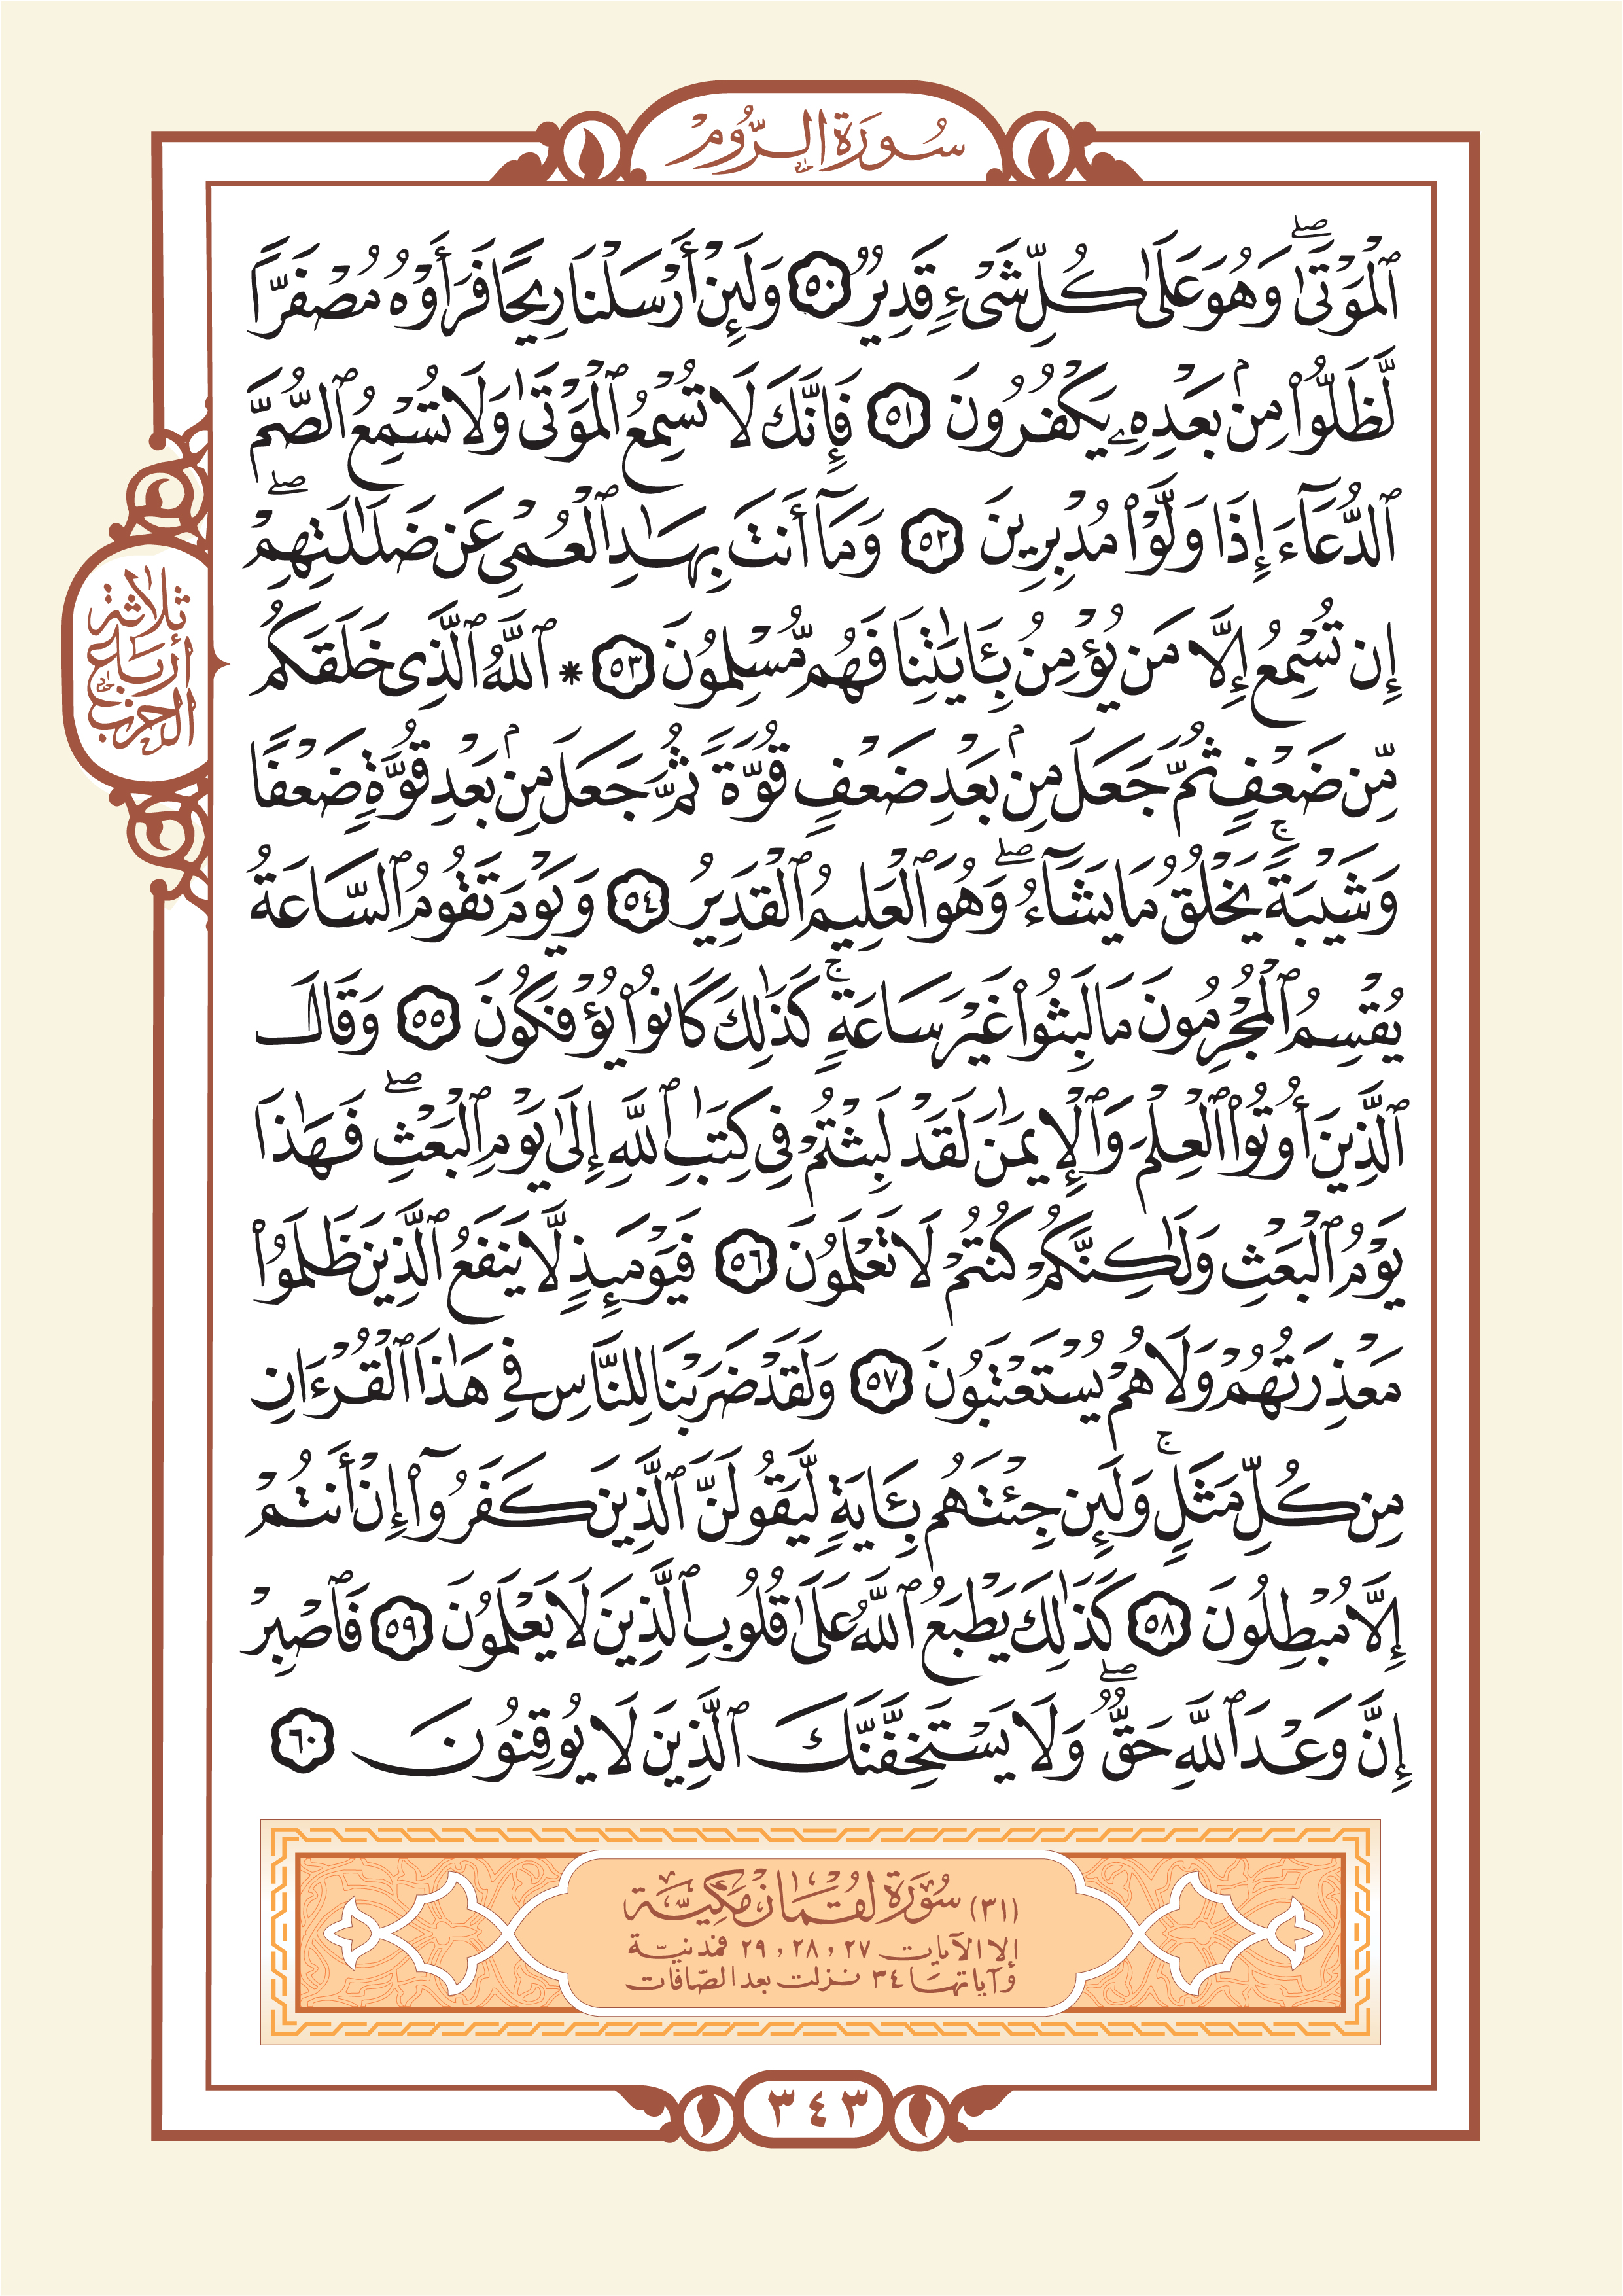 سُورَةُ الرُّومِ
ٱلْمَوْتَىٰۖ وَهُوَ عَلَىٰ كُلِّ شَىْءٍ قَدِيرٌ ٥٠ وَلَئِنْ أَرْسَلْنَا رِيحًا فَرَأَوْهُ مُصْفَرًّا
لَّظَلُّوا۟ مِنۢ بَعْدِهِۦ يَكْفُرُونَ ٥١ فَإِنَّكَ لَا تُسْمِعُ ٱلْمَوْتَىٰ وَلَا تُسْمِعُ ٱلصُّمَّ
ٱلدُّعَآءَ إِذَا وَلَّوْا۟ مُدْبِرِينَ ٥٢ وَمَآ أَنتَ بِهَـٰدِ ٱلْعُمْىِ عَن ضَلَـٰلَتِهِمْۖ
إِن تُسْمِعُ إِلَّا مَن يُؤْمِنُ بِـَٔايَـٰتِنَا فَهُم مُّسْلِمُونَ ٥٣ * ٱللَّهُ ٱلَّذِى خَلَقَكُم
مِّن ضَعْفٍ ثُمَّ جَعَلَ مِنۢ بَعْدِ ضَعْفٍ قُوَّةً ثُمَّ جَعَلَ مِنۢ بَعْدِ قُوَّةٍ ضَعْفًا
وَشَيْبَةًۚ يَخْلُقُ مَا يَشَآءُۖ وَهُوَ ٱلْعَلِيمُ ٱلْقَدِيرُ ٥٤ وَيَوْمَ تَقُومُ ٱلسَّاعَةُ
يُقْسِمُ ٱلْمُجْرِمُونَ مَا لَبِثُوا۟ غَيْرَ سَاعَةٍۚ كَذَٰلِكَ كَانُوا۟ يُؤْفَكُونَ ٥٥ وَقَالَ
ٱلَّذِينَ أُوتُوا۟ ٱلْعِلْمَ وَٱلْإِيمَـٰنَ لَقَدْ لَبِثْتُمْ فِى كِتَـٰبِ ٱللَّهِ إِلَىٰ يَوْمِ ٱلْبَعْثِۖ فَهَـٰذَا
يَوْمُ ٱلْبَعْثِ وَلَـٰكِنَّكُمْ كُنتُمْ لَا تَعْلَمُونَ ٥٦ فَيَوْمَئِذٍ لَّا يَنفَعُ ٱلَّذِينَ ظَلَمُوا۟
مَعْذِرَتُهُمْ وَلَا هُمْ يُسْتَعْتَبُونَ ٥٧ وَلَقَدْ ضَرَبْنَا لِلنَّاسِ فِى هَـٰذَا ٱلْقُرْءَانِ
مِن كُلِّ مَثَلٍۚ وَلَئِن جِئْتَهُم بِـَٔايَةٍ لَّيَقُولَنَّ ٱلَّذِينَ كَفَرُوٓا۟ إِنْ أَنتُمْ
إِلَّا مُبْطِلُونَ ٥٨ كَذَٰلِكَ يَطْبَعُ ٱللَّهُ عَلَىٰ قُلُوبِ ٱلَّذِينَ لَا يَعْلَمُونَ ٥٩ فَٱصْبِرْ
إِنَّ وَعْدَ ٱللَّهِ حَقٌّۖ وَلَا يَسْتَخِفَّنَّكَ ٱلَّذِينَ لَا يُوقِنُونَ ٦٠
ثلاثة
أرباع
الحزب
(٣١) سُورَةُ لُقْمَان مَكِّيَّة
إلا الآيات ٢٧، ٢٨، ٢٩ فمدنيّة
وآياتها ٣٤ نزلت بعد الصّافات
٣٤٣